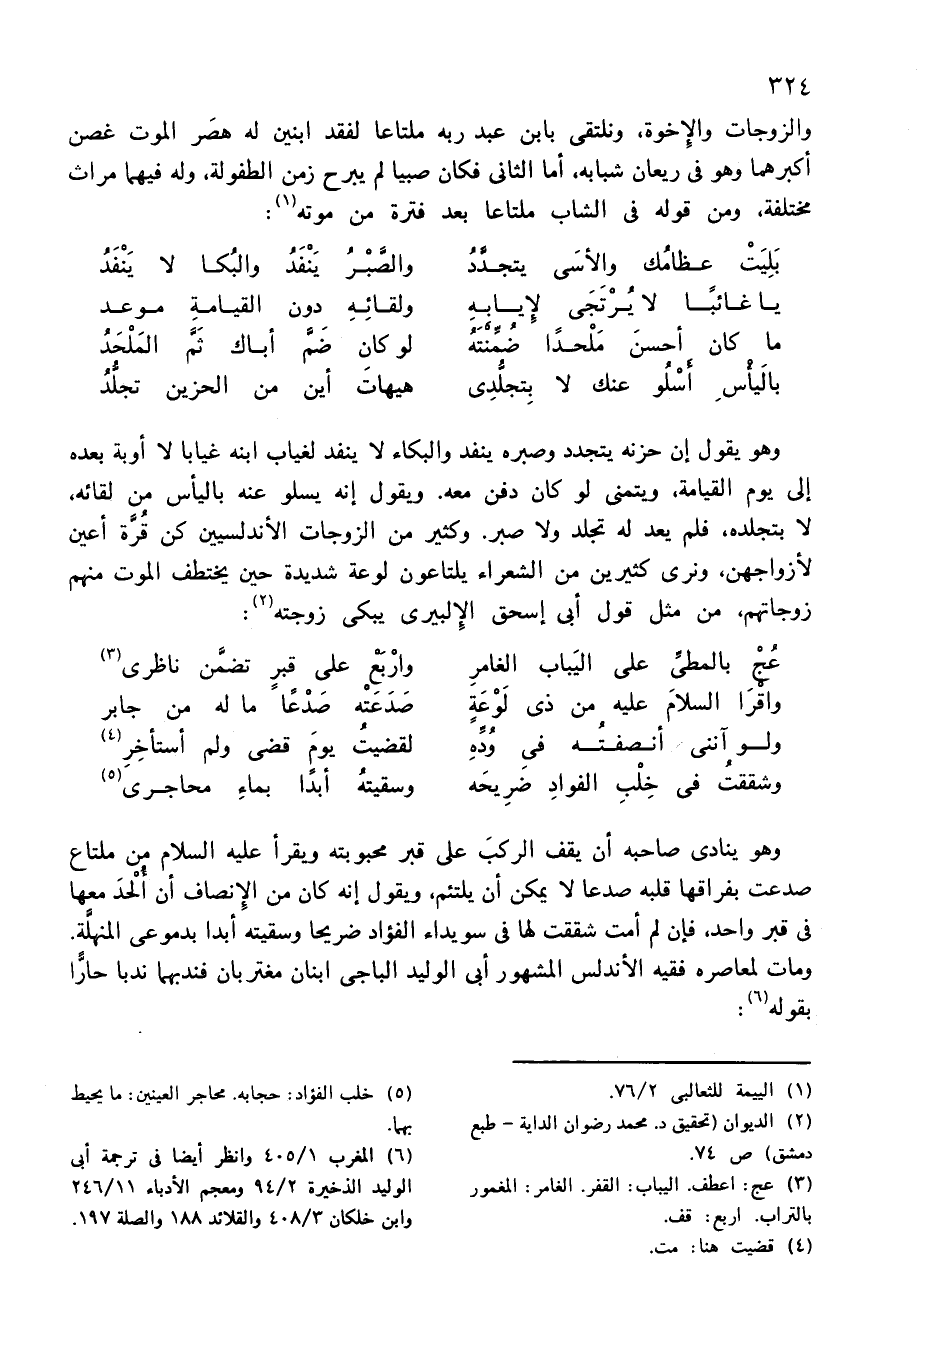 ٣٢٤
والزوجات والإخوة، ونلتقى بابن عبد ربه ملتاعا لفقد ابنين له هصَر الموت غصن
أكبرهما وهو فى ريعان شبابه، أما الثانى فكان صبيا لم يبرح زمن الطفولة، وله فيهما مراث
مختلفة، ومن قوله فى الشاب ملتاعا بعد فترة من موته(١):
بَلِيَتْ عظامُك والأسَى يتجدَّدُ والصَّبْرُ يَنْفَدُ والبُكا لا يَنْفَدُ
يا غائبًا لا يُرْتَجَى لإيابِهِ ولقائِهِ دون القيامةِ موعد
ما كان أحسنَ مَلْحدًا ضُمِّنْتَهُ لو كان ضَمَّ أباك ثَمَّ المَلْحَدُ
باليأْسِ أَسْلُو عنك لا بِتجلُّدِى هيهات أين من الحزين تجلُّدُ
وهو يقول إن حزنه يتجدد وصبره ينفد والبكاء لا ينفد لغياب ابنه غيابا لا أوبة بعده
إلى يوم القيامة، ويتمنى لو كان دفن معه. ويقول إنه يسلو عنه باليأس من لقائه،
لا بتجلده، فلم يعد له تجلد ولا صبر. وكثير من الزوجات الأندلسيين كن قُرَّة أعين
لأزواجهن، ونرى كثيرين من الشعراء يلتاعون لوعة شديدة حين يختطف الموت منهم
زوجاتهم، من مثل قول أبى إسحق الإلبيرى يبكى زوجته(٢):
عُجْ بالمطىِّ على اليَباب الغامرِ وارْبَعْ على قبرٍ تضمَّن ناظرى(٣)
واقْرَا السلامَ عليه من ذى لَوْعَةٍ صَدَعَتْه صَدْعًا ما له من جابر
ولو آننى أنصفتُه فى وُدِّهِ لقضيتُ يومَ قضى ولم أستأخِرِ(٤)
وشققتُ فى خِلْبِ الفوادِ ضَرِيحَه وسقيتهُ أبدًا بماءِ محاجرى(٥)
وهو ينادى صاحبه أن يقف الركبَ على قبر محبوبته ويقرأ عليه السلام مِن ملتاع
صدعت بفراقها قلبه صدعا لا يمكن أن يلتئم، ويقول إنه كان من الإنصاف أن أُلْحَدَ معها
فى قبر واحد، فإن لم أمت شققت لها فى سويداء الفؤاد ضريحا وسقيته أبدا بدموعى المنهلَّة.
ومات لمعاصره فقيه الأندلس المشهور أبى الوليد الباجى ابنان مغتربان فندبهما ندبا حارًّا
بقوله(٦):
(١) اليتيمة للثعالبى ٧٦/٢.
(٢) الديوان (تحقيق د. محمد رضوان الداية – طبع
دمشق) ص ٧٤.
(٣) عج: اعطف. اليباب: القفر. الغامر: المغمور
بالتراب. اربع: قف.
(٤) قضيت هنا: مت.
(٥) خلب الفؤاد: حجابه. محاجر العينين: ما يحيط
بهما.
(٦) المغرب ٤٠٥/١ وانظر أيضا فى ترجمة أبى
الوليد الذخيرة ٩٤/٢ ومعجم الأدباء ٢٤٦/١١
وابن خلكان ٤٠٨/٣ والقلائد ١٨٨ والصلة ١٩٧.